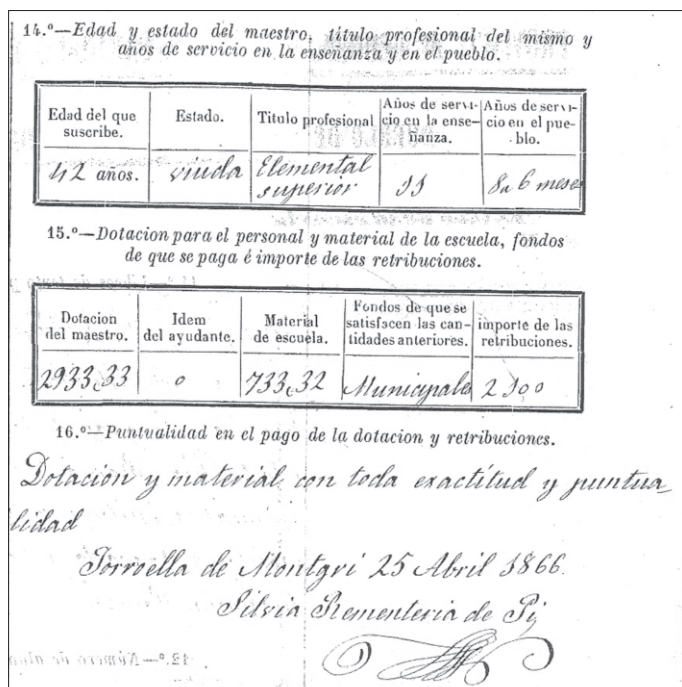 14.º—Edad y estado del maestro, título profesional del mismo y
años de servicio en la enseñanza y en el pueblo.
Edad del que
suscribe.
Estado.
Titulo profesional
Años de servi-
cio en la ense-
ñanza.
Años de servi-
cio en el pue-
blo.
42 años.
viuda
Elemental
superior
11
8 a 6 mese
15.º—Dotacion para el personal y material de la escuela, fondos
de que se paga é importe de las retribuciones.
Dotacion
del maestro.
Idem
del ayudante.
Material
de escuela.
Fondos de que se
satisfacen las can-
tidades anteriores.
importe de las
retribuciones.
2933,33
0
733,32
Municipales
2100
16.º—Puntualidad en el pago de la dotacion y retribuciones.
Dotacion y material con toda exactitud y puntua_
lidad
Torroella de Montgri 25 Abril 1866.
Silvia Rementeria de Pi